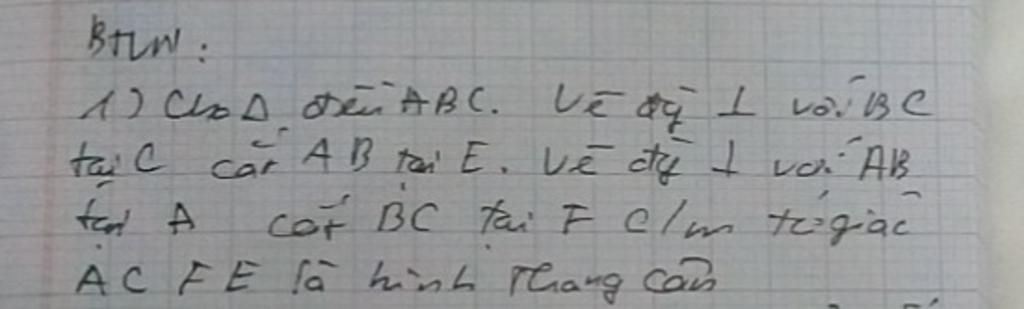 BTVN :
1) Cho Δ đều ABC. Vẽ đg ⊥ với BC
tại C cắt AB tại E. Vẽ đg ⊥ với AB
tại A cắt BC tại F C/m tứ giác
ACFE là hình thang cân